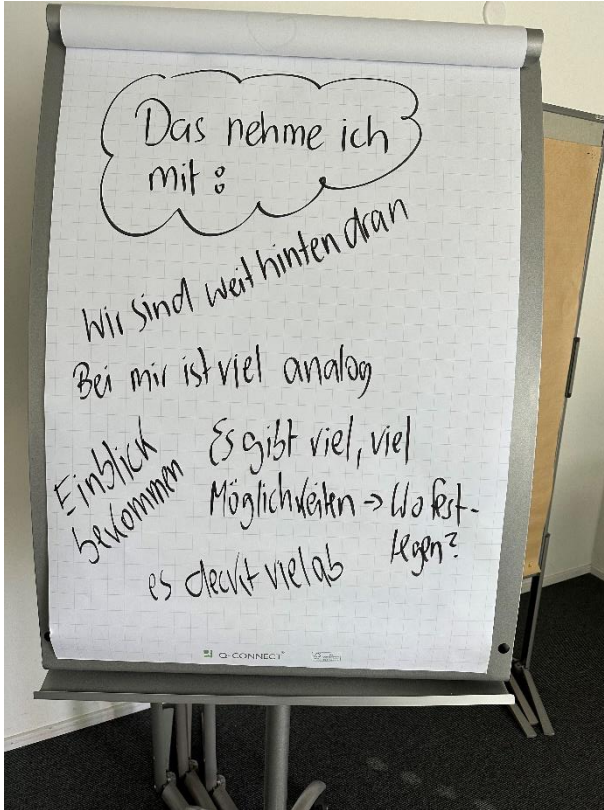 Das nehme ich
mit:
Wir sind weit hinten dran
Bei mir ist viel analog
Einblick
bekommen
Es gibt viel, viel
Möglichkeiten → Wo fest-
legen?
es deckt viel ab
Q-CONNECT